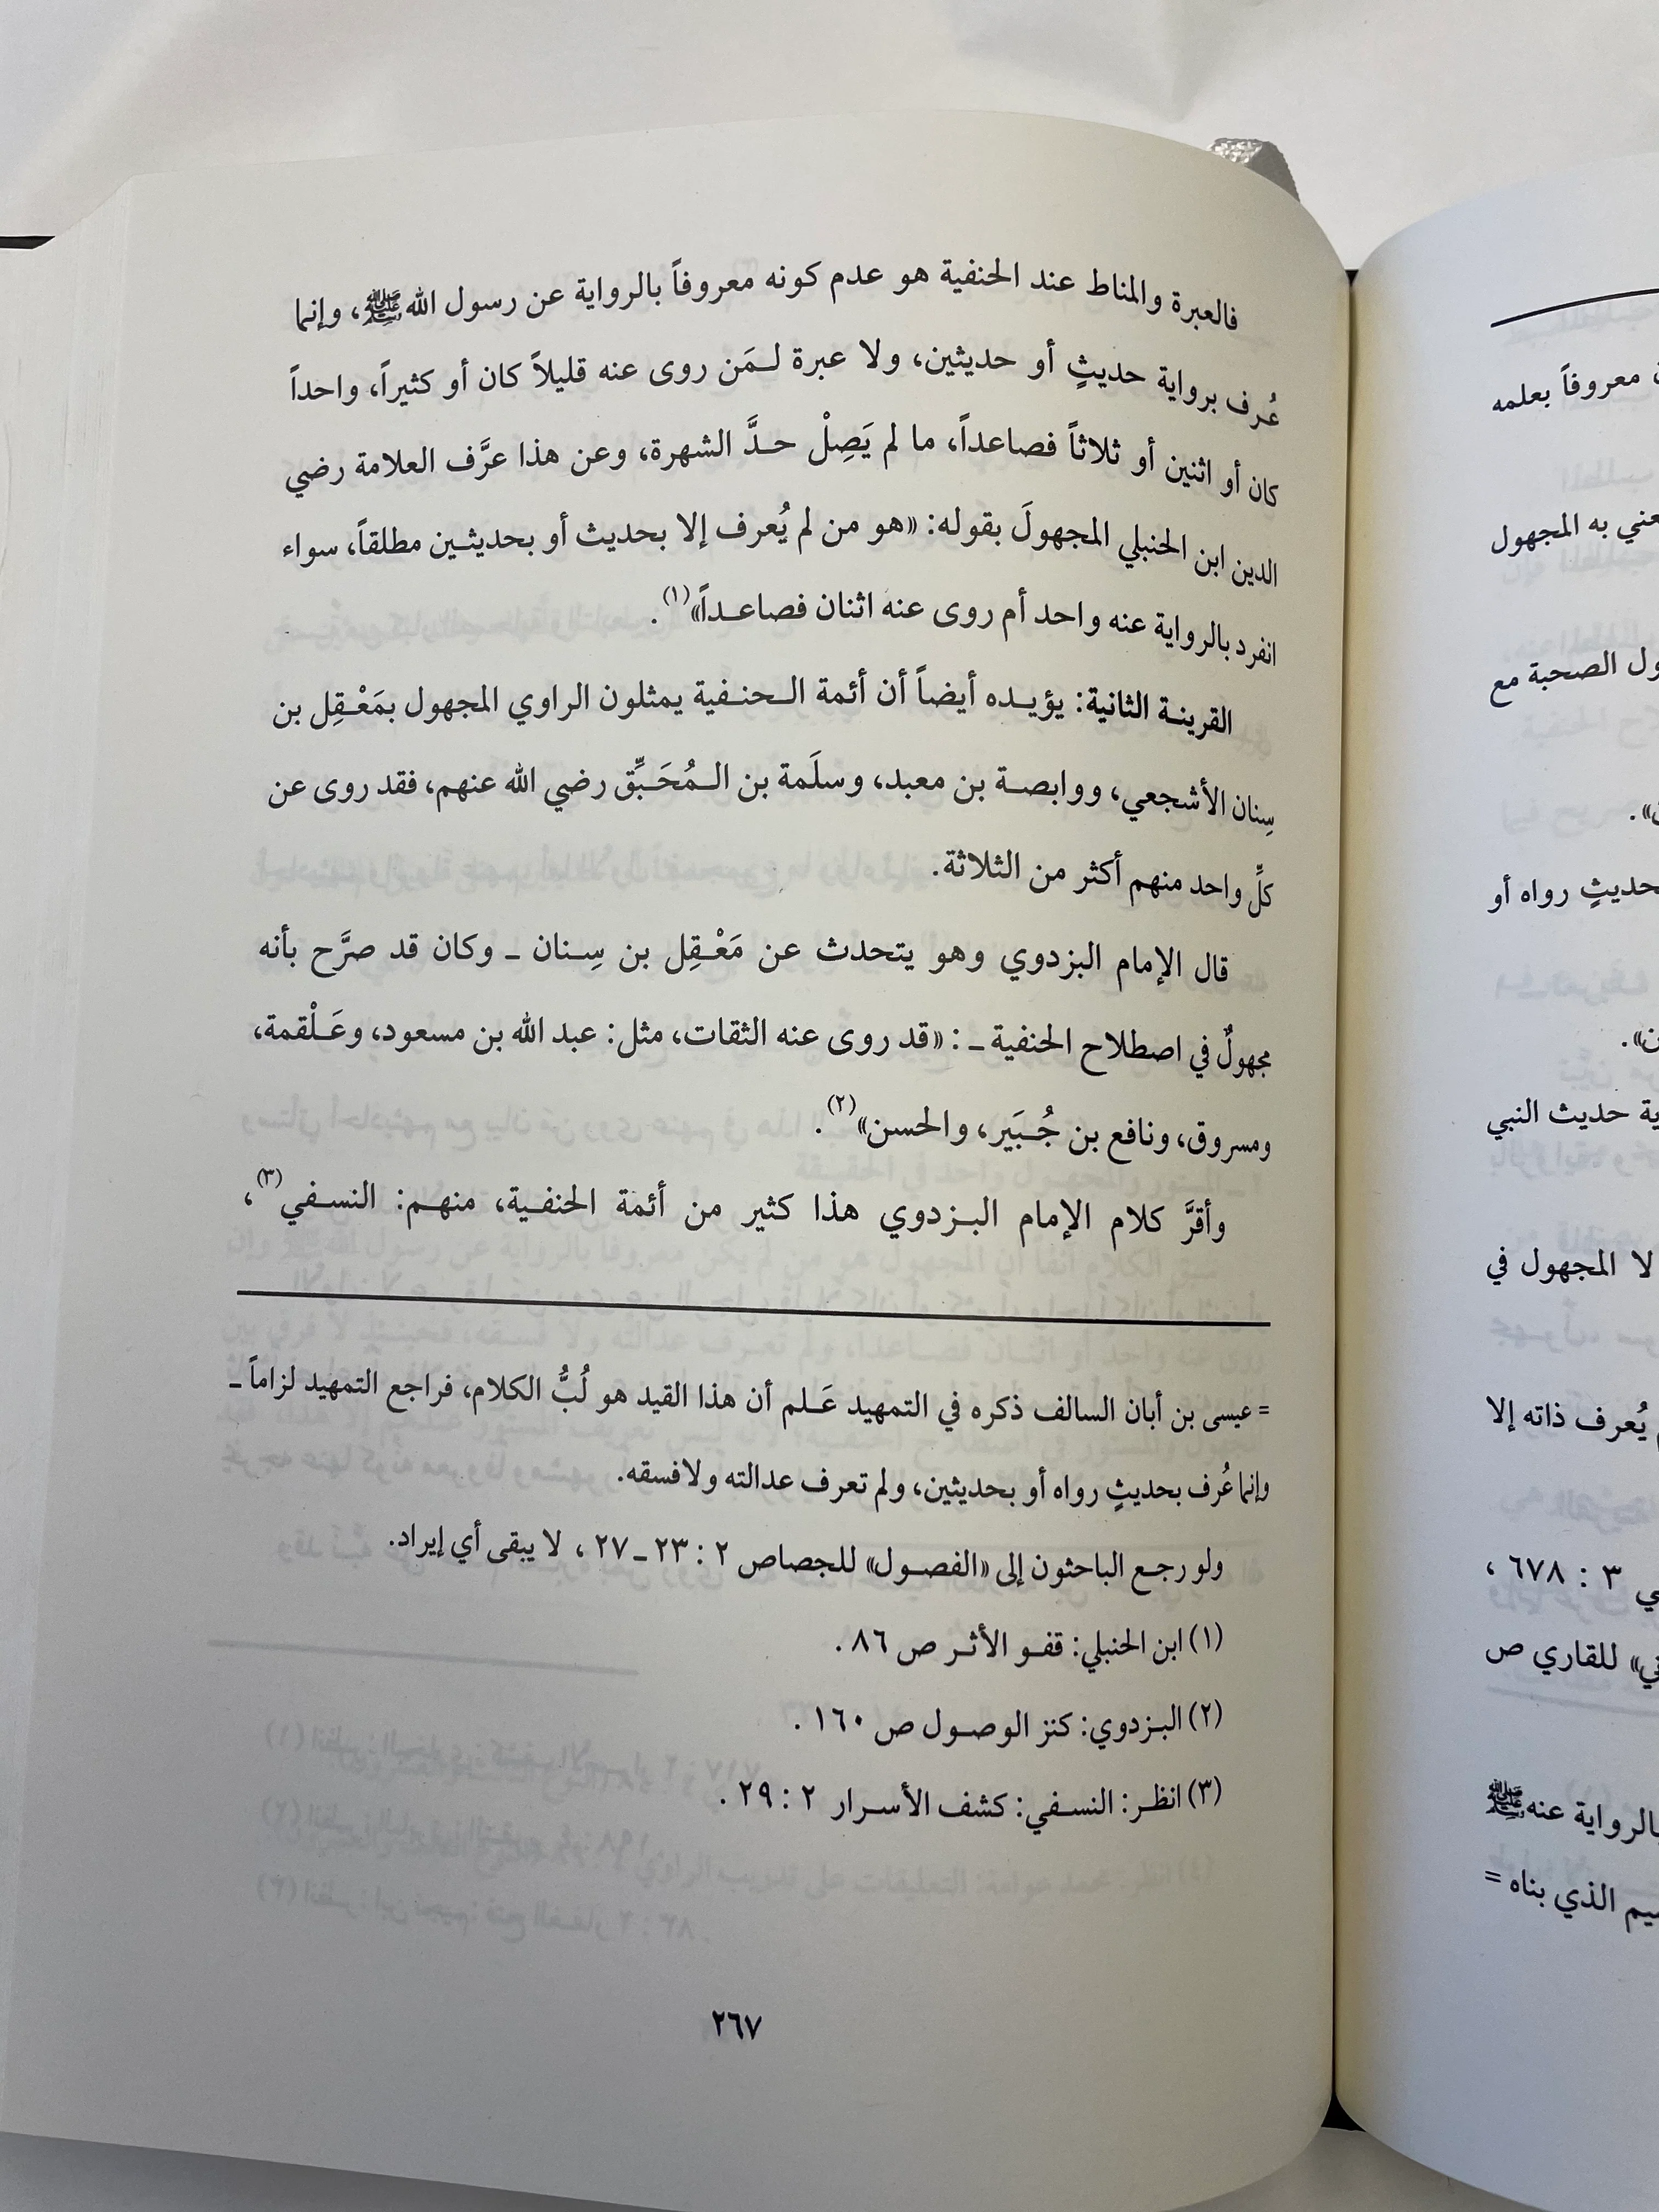 فالعبرة والمناط عند الحنفية هو عدم كونه معروفاً بالرواية عن رسول الله ﷺ، وإنما
عُرف برواية حديثٍ أو حديثين، ولا عبرة لـمَن روى عنه قليلاً كان أو كثيراً، واحداً
كان أو اثنين أو ثلاثاً فصاعداً، ما لم يَصِلْ حدَّ الشهرة، وعن هذا عرَّف العلامة رضي
الدين ابن الحنبلي المجهولَ بقوله: «هو من لم يُعرف إلا بحديث أو بحديثين مطلقاً، سواء
انفرد بالرواية عنه واحد أم روى عنه اثنان فصاعداً»(١).
القرينة الثانية: يؤيده أيضاً أن أئمة الحنفية يمثلون الراوي المجهول بمَعْقِل بن
سِنان الأشجعي، ووابصة بن معبد، وسلَمة بن الـمُحَبِّق رضي الله عنهم، فقد روى عن
كلِّ واحد منهم أكثر من الثلاثة.
قال الإمام البزدوي وهو يتحدث عن مَعْقِل بن سِنان ـ وكان قد صرَّح بأنه
مجهولٌ في اصطلاح الحنفية ـ: «قد روى عنه الثقات، مثل: عبد الله بن مسعود، وعَلْقمة،
ومسروق، ونافع بن جُبَير، والحسن»(٢).
وأقرَّ كلام الإمام البزدوي هذا كثير من أئمة الحنفية، منهم: النسفي(٣)،
= عيسى بن أبان السالف ذكره في التمهيد عَلم أن هذا القيد هو لُبُّ الكلام، فراجع التمهيد لزاماً ـ
وإنما عُرف بحديثٍ رواه أو بحديثين، ولم تعرف عدالته ولا فسقه.
ولو رجع الباحثون إلى «الفصول» للجصاص ٢ : ٢٣ ـ ٢٧ ، لا يبقى أي إيراد.
(١) ابن الحنبلي: قفو الأثر ص ٨٦ .
(٢) البزدوي: كنز الوصول ص ١٦٠ .
(٣) انظر: النسفي: كشف الأسرار ٢ : ٢٩ .
٢٦٧
معروفاً بعلمه
به المجهول
الصحبة مع
رواه أو
حديث النبي
لا المجهول في
يُعرف ذاته إلا
٣ : ٦٧٨ ،
للقاري ص
بالرواية عنه ﷺ
الذي بناه =